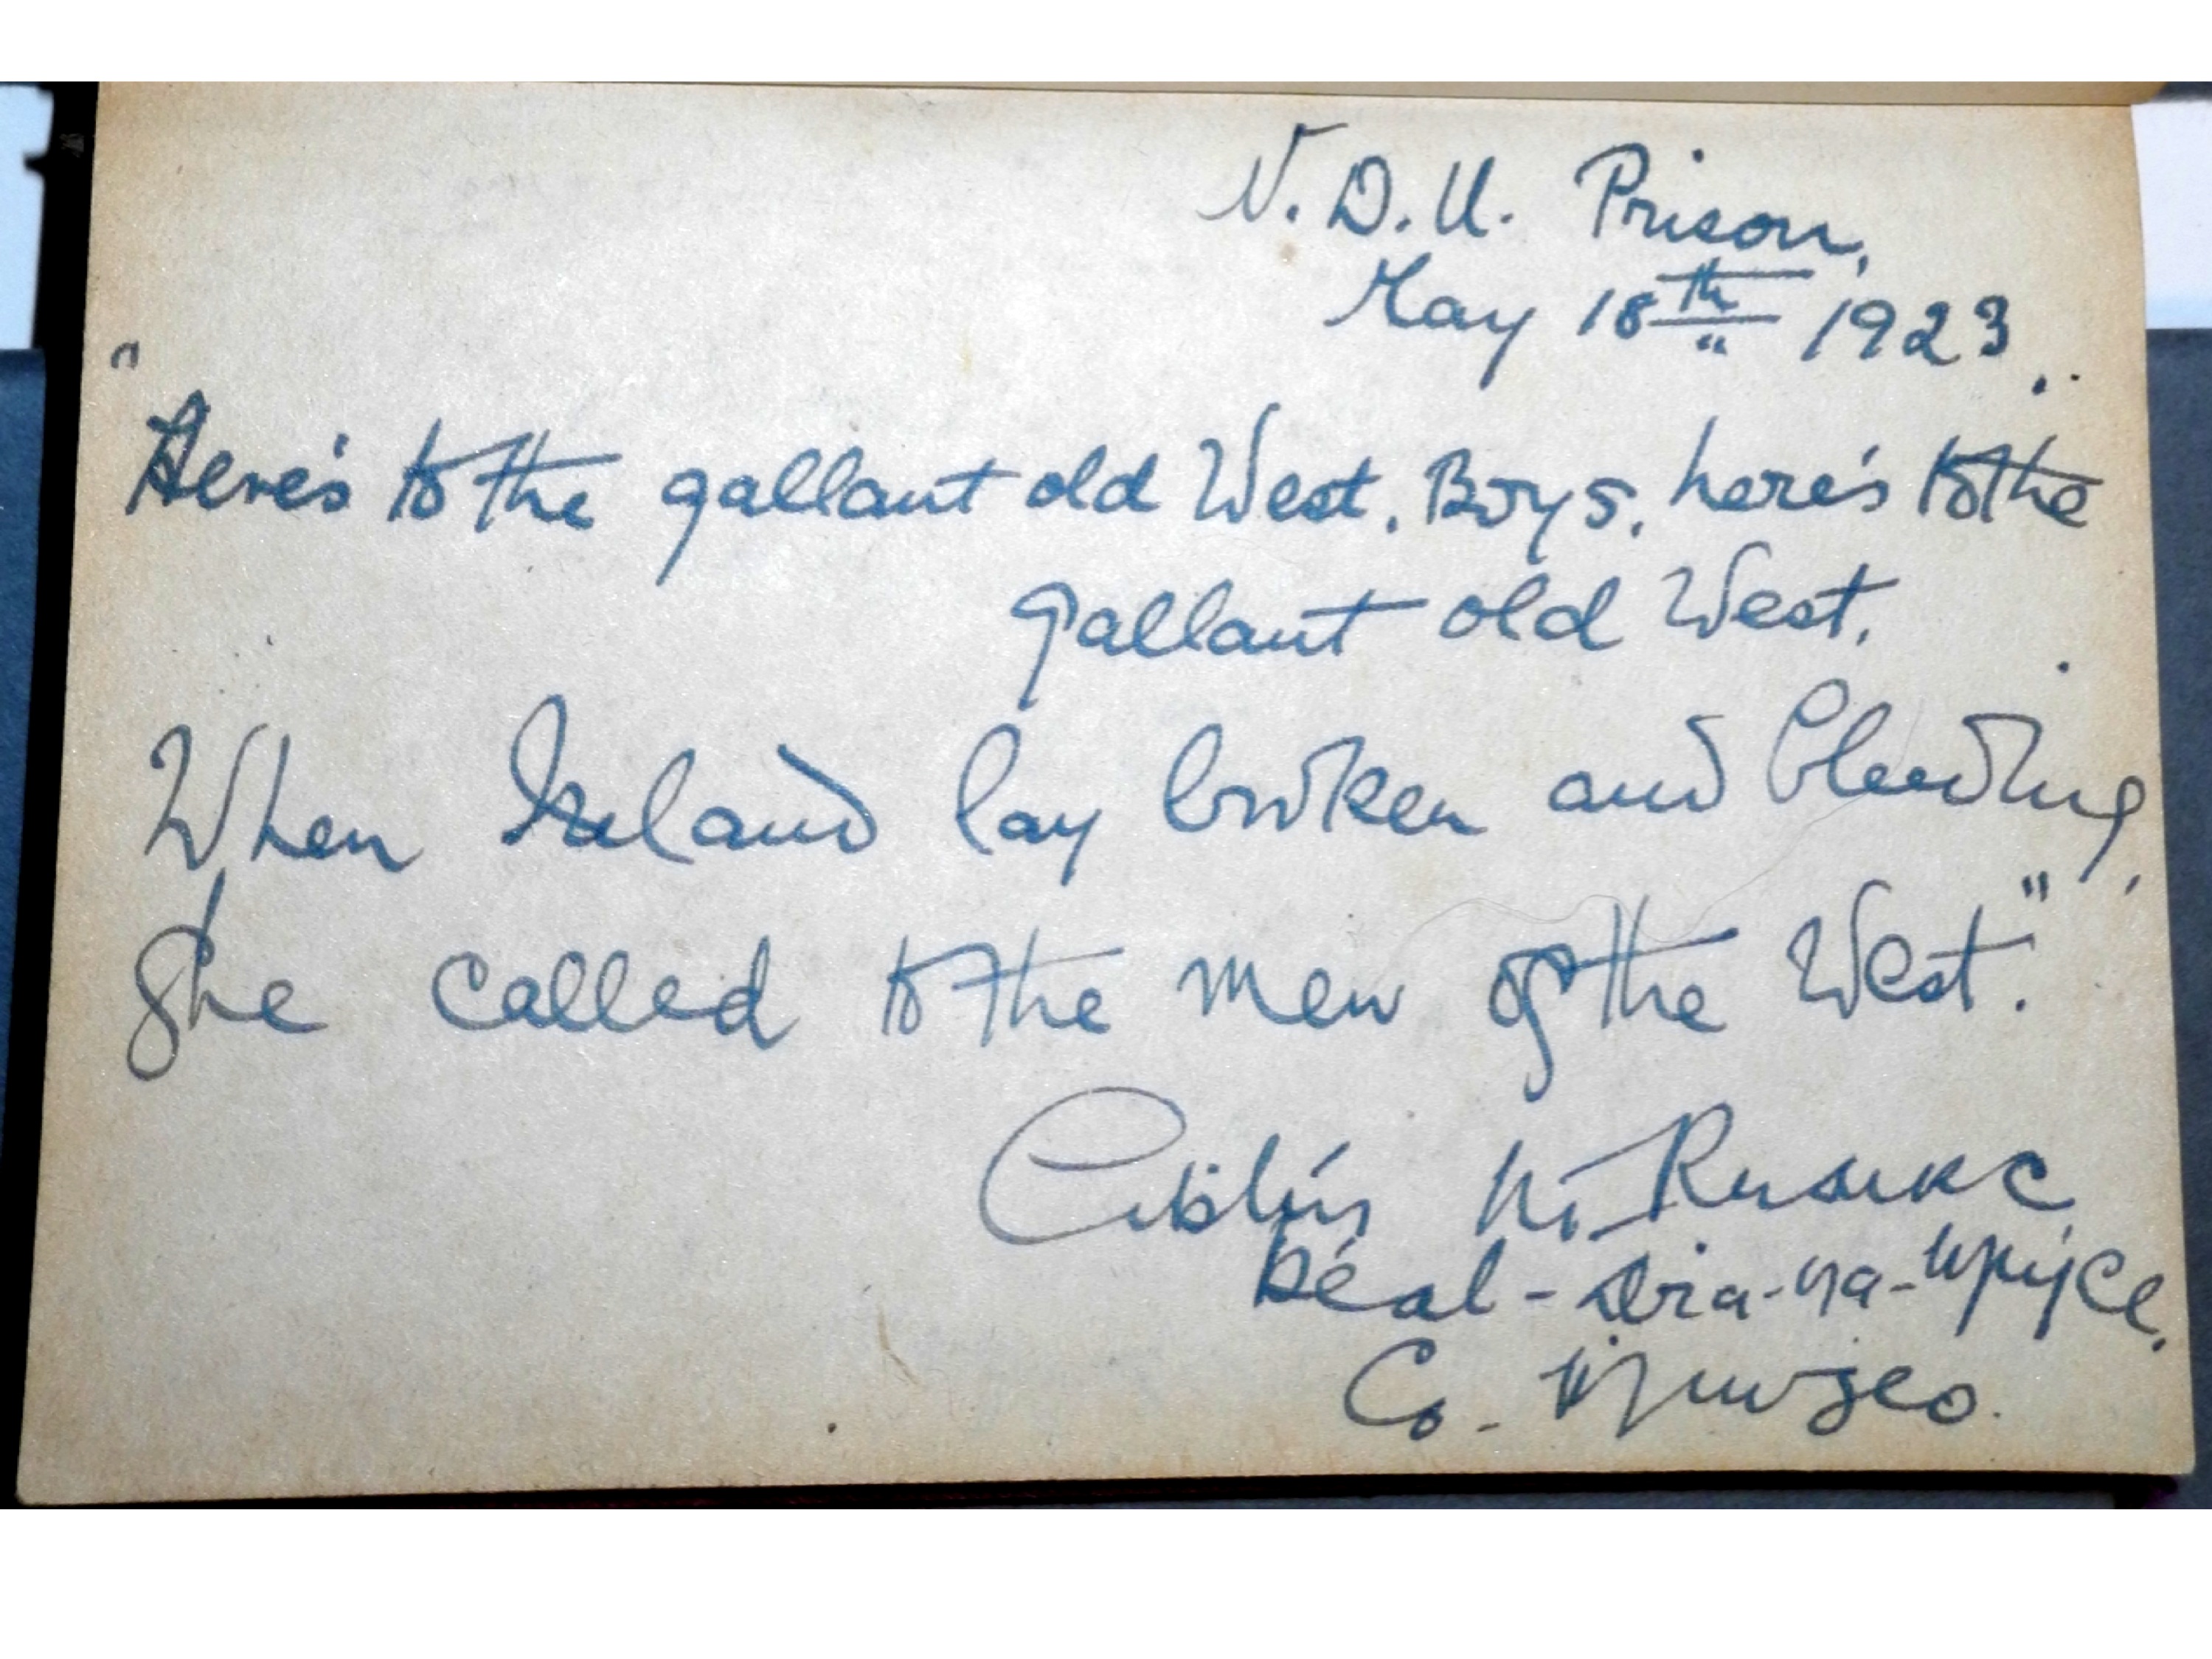 N. D. U. Prison,
May 18th 1923.
"Here's to the gallant old West, Boys, here's to the
gallant old West.
When Ireland lay broken and bleeding,
She called to the men of the West."
Eiḃlín Ní Ruairc
Béal-Áṫa-na-Muice,
Co. Ṁuiġeo.